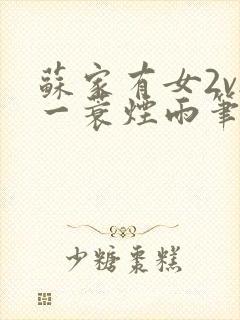 蘇家有女2v
一蓑煙雨筆
少糖棗糕